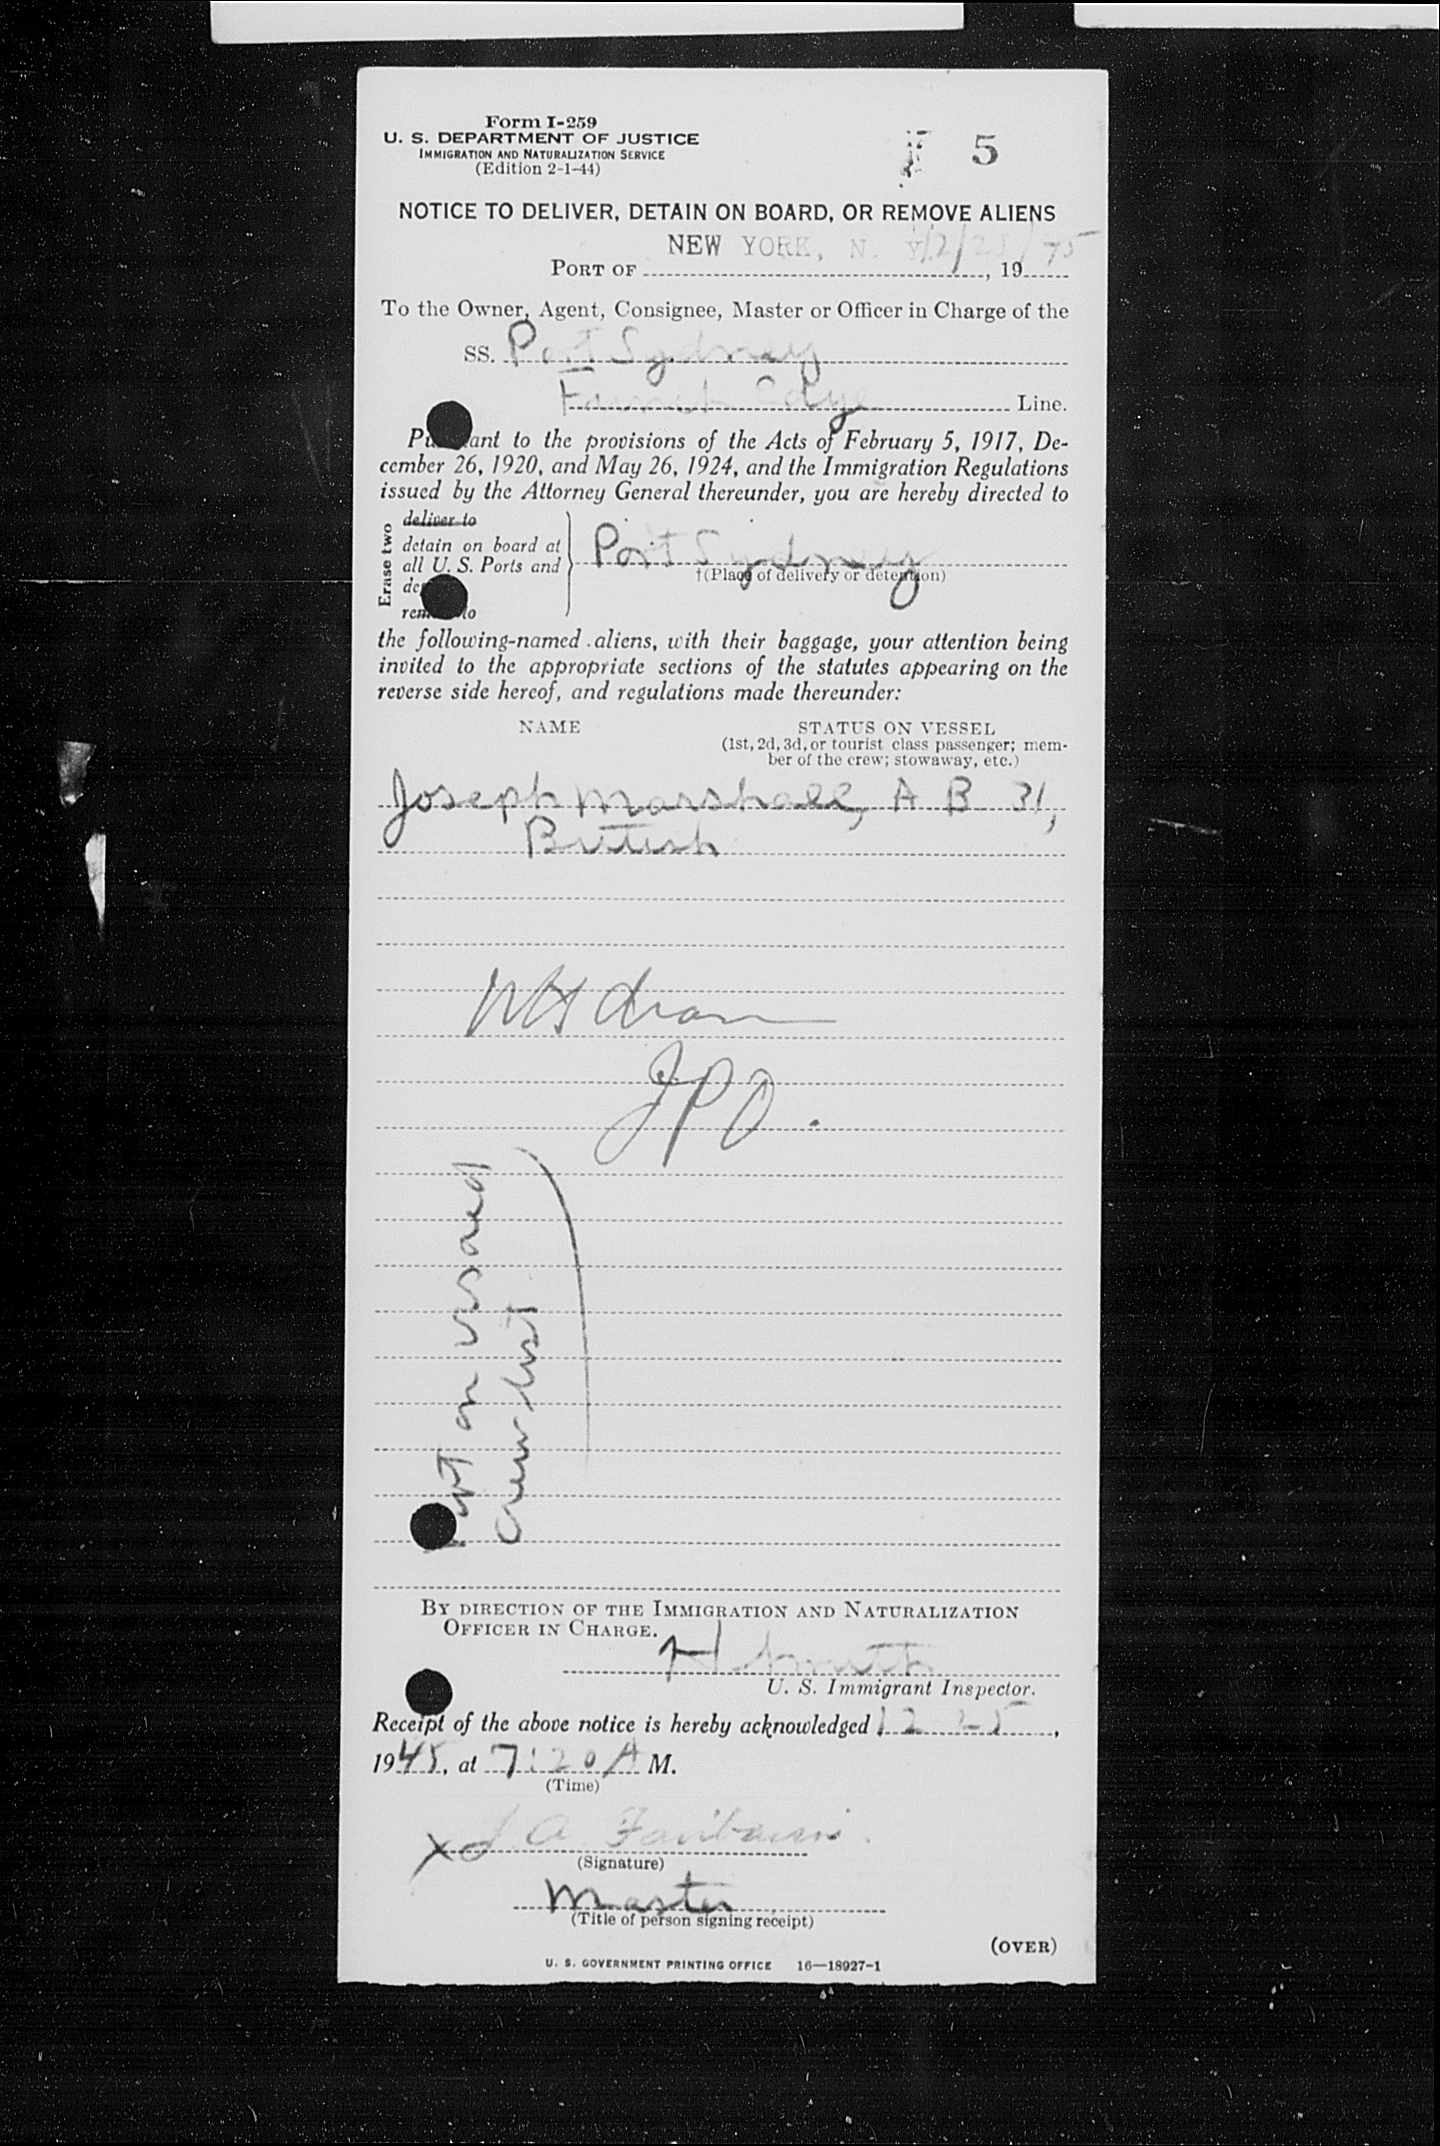 Form I-259
U. S. DEPARTMENT OF JUSTICE
IMMIGRATION AND NATURALIZATION SERVICE
(Edition 2-1-44)
5
NOTICE TO DELIVER, DETAIN ON BOARD, OR REMOVE ALIENS
NEW YORK, N. Y. 12/25/45
PORT OF , 19
To the Owner, Agent, Consignee, Master or Officer in Charge of the
SS. Port Sydney
Furness Line.
Pursuant to the provisions of the Acts of February 5, 1917, De-
cember 26, 1920, and May 26, 1924, and the Immigration Regulations
issued by the Attorney General thereunder, you are hereby directed to
Erase two
deliver to
detain on board at
all U. S. Ports and
Port Sydney
†(Place of delivery or detention)
remove to
the following-named aliens, with their baggage, your attention being
invited to the appropriate sections of the statutes appearing on the
reverse side hereof, and regulations made thereunder:
NAME STATUS ON VESSEL
(1st, 2d, 3d, or tourist class passenger; mem-
ber of the crew; stowaway, etc.)
Joseph Marshall, A B 31,
British
JPO.
Not on visaed
crew list
BY DIRECTION OF THE IMMIGRATION AND NATURALIZATION
OFFICER IN CHARGE.
H Smith
U. S. Immigrant Inspector.
Receipt of the above notice is hereby acknowledged 12 25,
1945, at 7:20 A M.
(Time)
X
(Signature)
Master
(Title of person signing receipt)
(OVER)
U. S. GOVERNMENT PRINTING OFFICE 16—18927-1